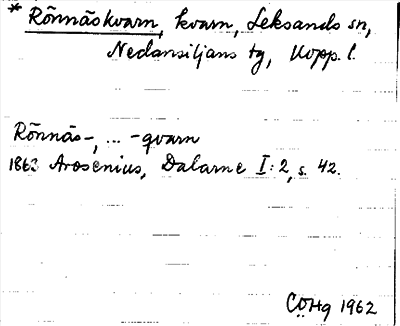 * Rönnäskvarn, kvarn, Leksands sn,
Nedansiljans tg, Kopp. l.
Rönnäs-, ... -qvarn
1863 Arosenius, Dalarne I:2, s. 42.
CÖHg 1962